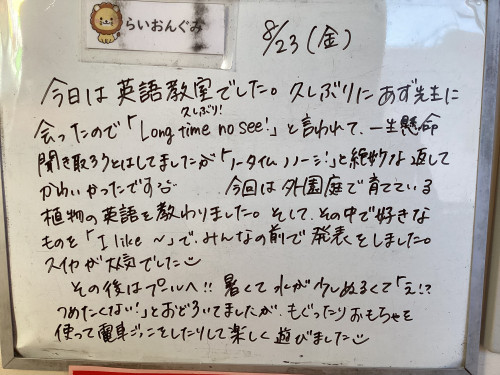 らいおんぐみ
8/23(金)
今日は英語教室でした。久しぶりにあず先生に
久しぶり!
会ったので「Long time no see!」と言われて、一生懸命
聞き取ろうとはしてましたが「ノータイムノーシー!」と絶妙な返しで
かわいかったです 今回は外園庭で育てている
植物の英語を教わりました。そして、その中で好きな
ものを「I like ~」で、みんなの前で発表をしました。
スイカが人気でした
その後はプールへ!! 暑くて水が少しぬるくて「え!?
つめたくない!」とおどろいてましたが、もぐったりおもちゃを
使って電車ごっこをしたりして楽しく遊びました